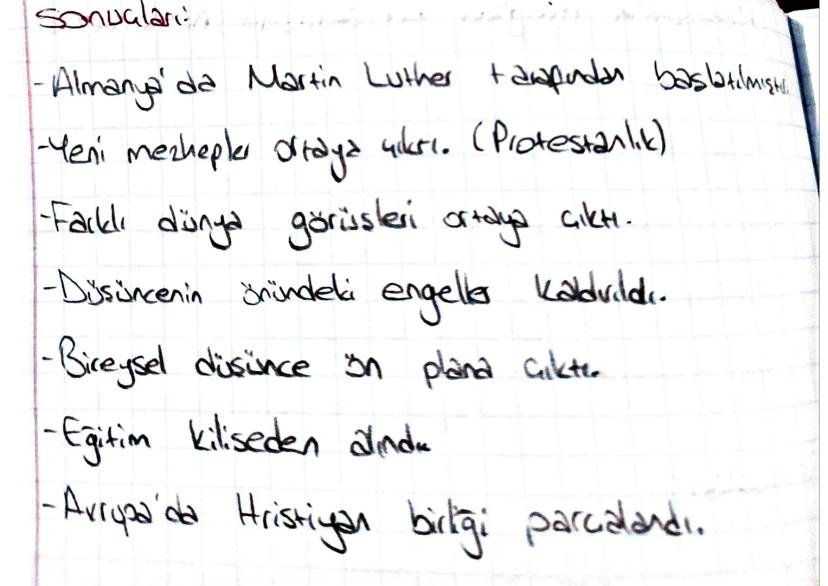 Sonuçları:
-Almanya'da Martin Luther tarafından başlatılmıştı.
-Yeni mezhepler ortaya çıktı. (Protestanlık)
-Farklı dünya görüşleri ortaya çıktı.
-Düşüncenin önündeki engeller kaldırıldı.
-Bireysel düşünce ön plana çıktı.
-Eğitim kiliseden alındı
-Avrupa'da Hristiyan birliği parçalandı.